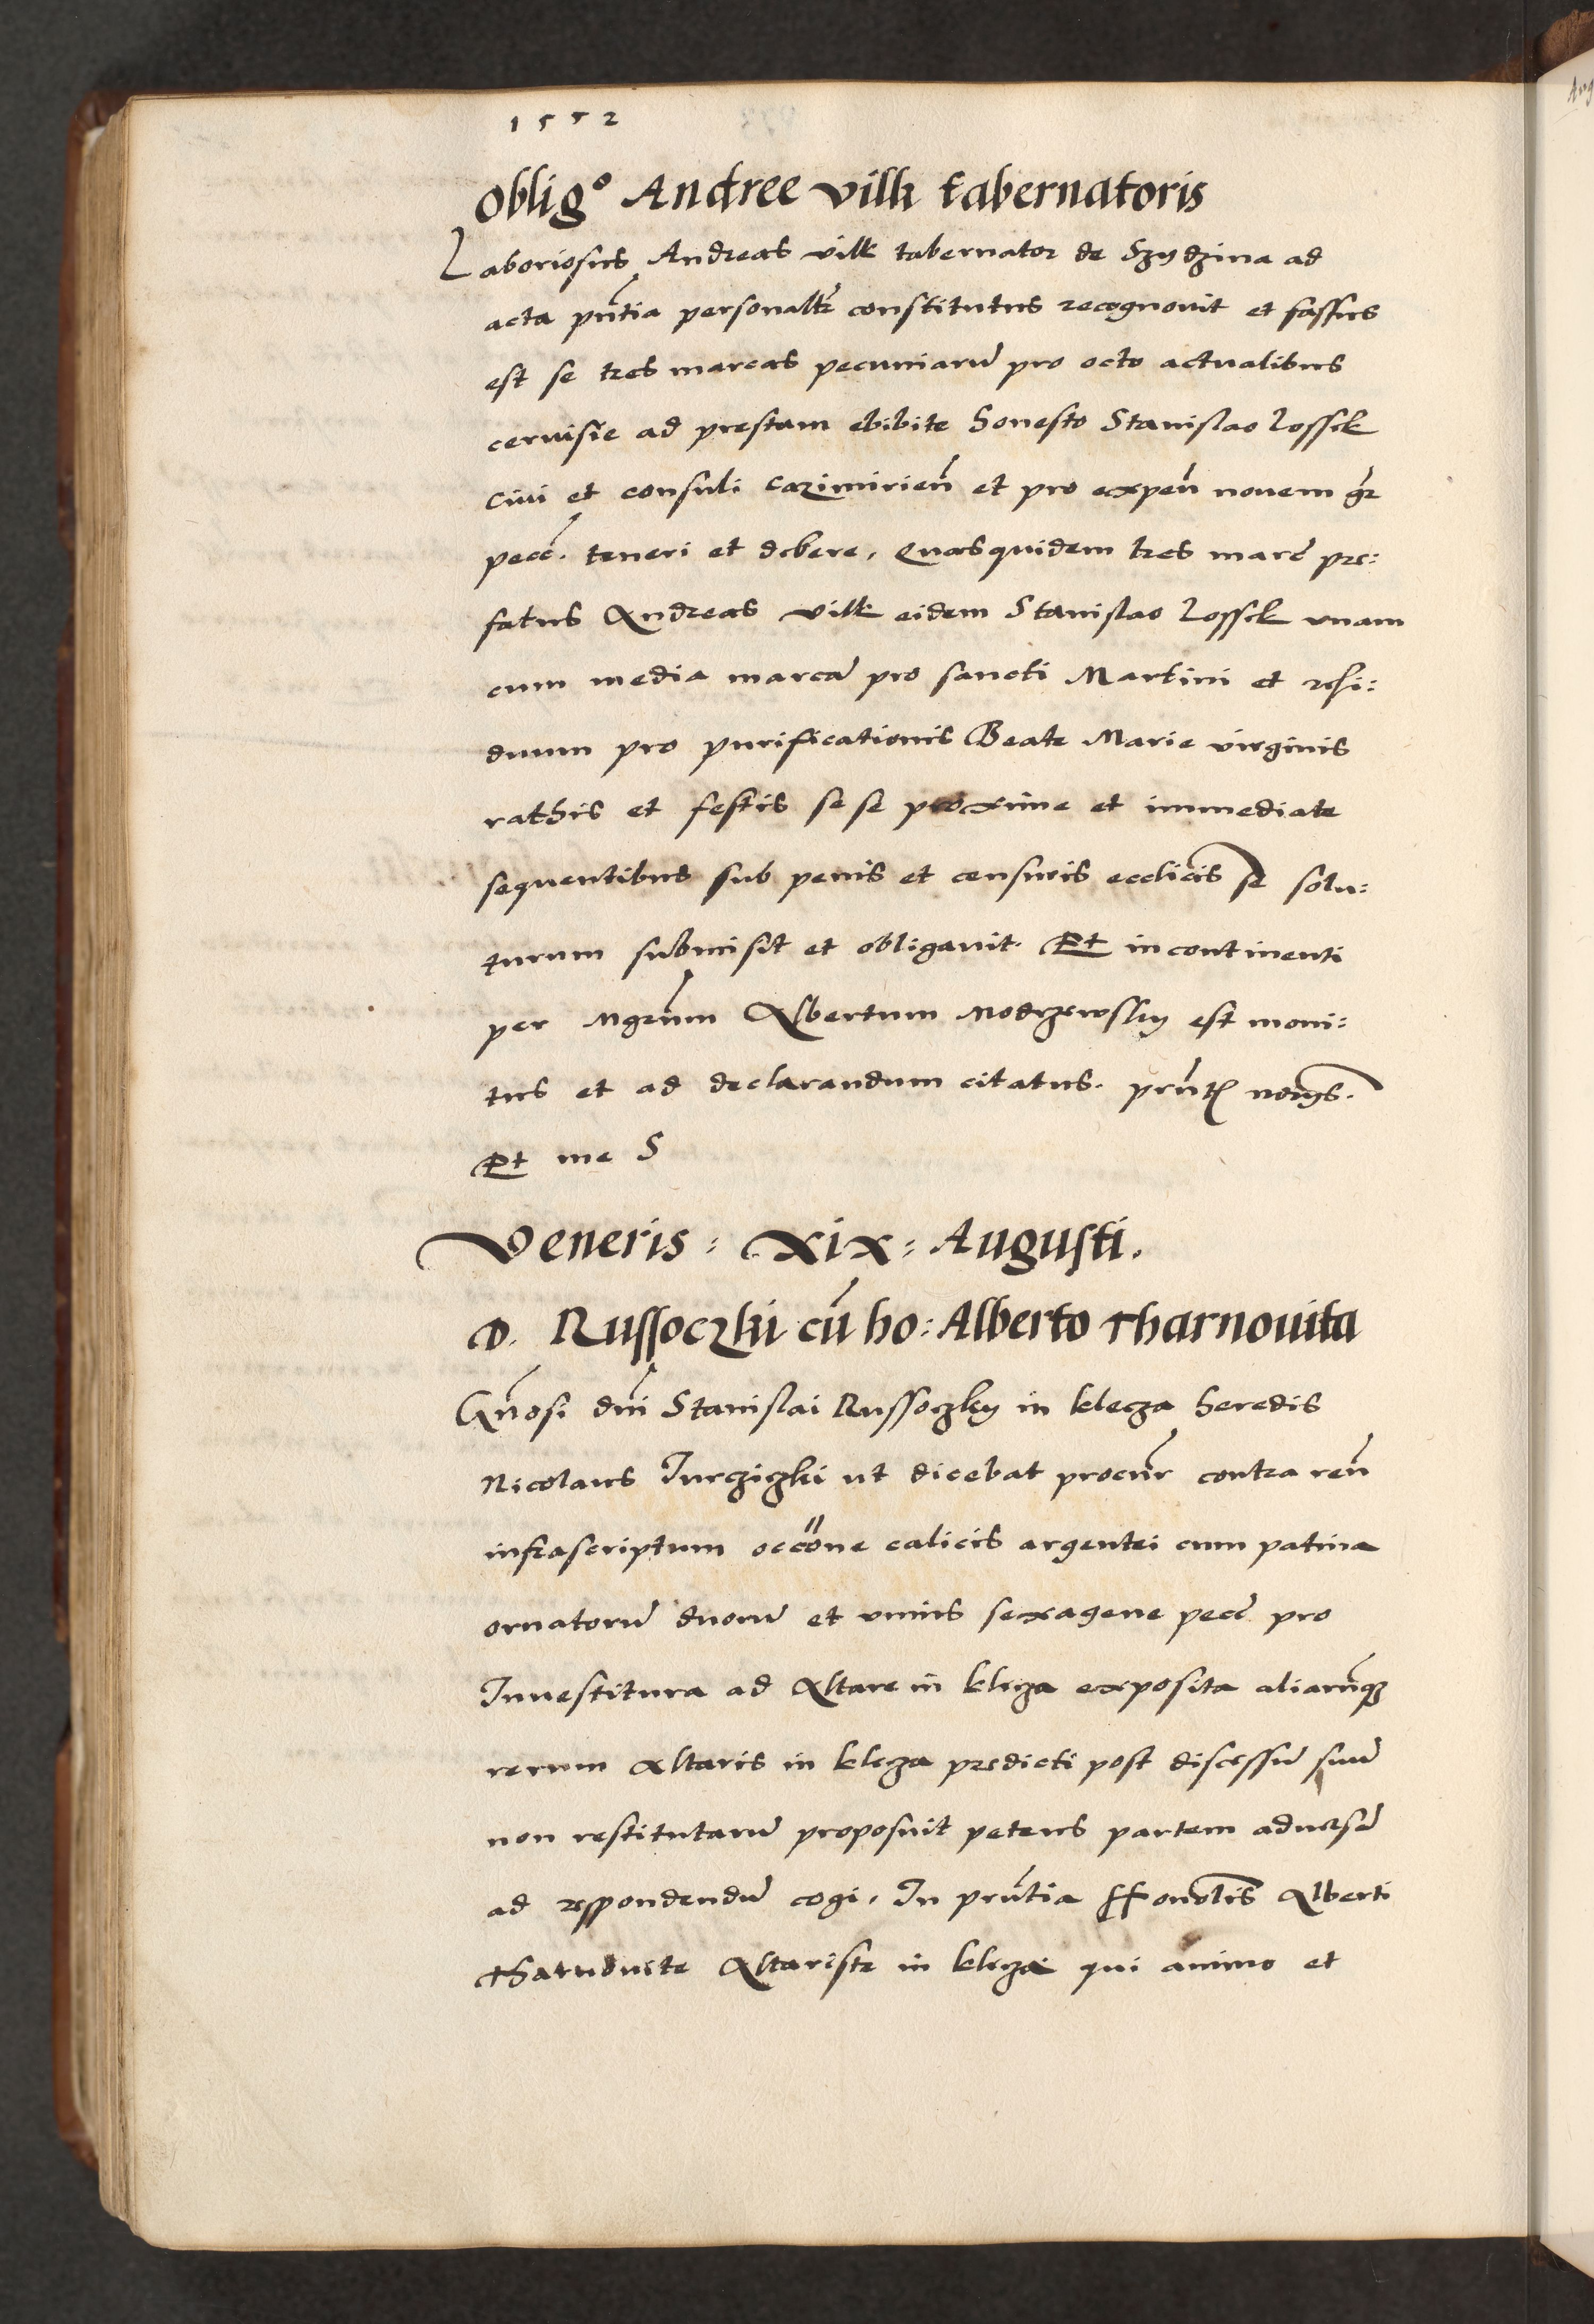 1552
Oblig° Andree vilk tabernatoris
Laboriosus Andreas vilk tabernator de Szydzina ad
acta pñtia personaltr constitutus recognouit et fassus
est se tres marcas pecuniarũ pro octo actualibus
ceruisie ad prestam ebibite Honesto Stanislao Lossek
Ciui et consuli Cazimirieñ et pro expeñ nouem gr
pecc̃. teneri et debere, Quasquidem tres marc̃ pre:
fatus Andreas vilk eidem Stanislao Lossek vnam
cum media marcã pro sancti Martini et resi:
duum pro purificationis Beate Marie virginis
rathis et festis se se proxime et immediate
sequentibus sub penis et censuris eccl̃icis se solu:
turum submisit et obligauit. Et in continenti
per Mgrũm Albertum Modrzewsky est moni:
tus et ad declarandum citatus. pñtꝭ noĩgs.
Et me S
Veneris: xix: Augusti.
D. Russoczki cũ ho: Alberto Tharnouita
Gñosi dñi Stanislai Russoczky in klecza heredis
Nicolaus Jurcziczki ut dicebat procur̃ contra reũ
infrascriptum occõne calicis argentei cum patina
ornatorũ duorũ et vnius sexagene pecc̃ pro
Inuestitura ad Altare in klecza exposita aliarũqꝫ
rerum Altaris in klecza predicti post discessũ suũ
non restitutarũ proposuit petens partem aduersã
ad respondendũ cogi, In pñtia Honol̃is Alberti
Tharnouite Altariste in klecza qui animo et